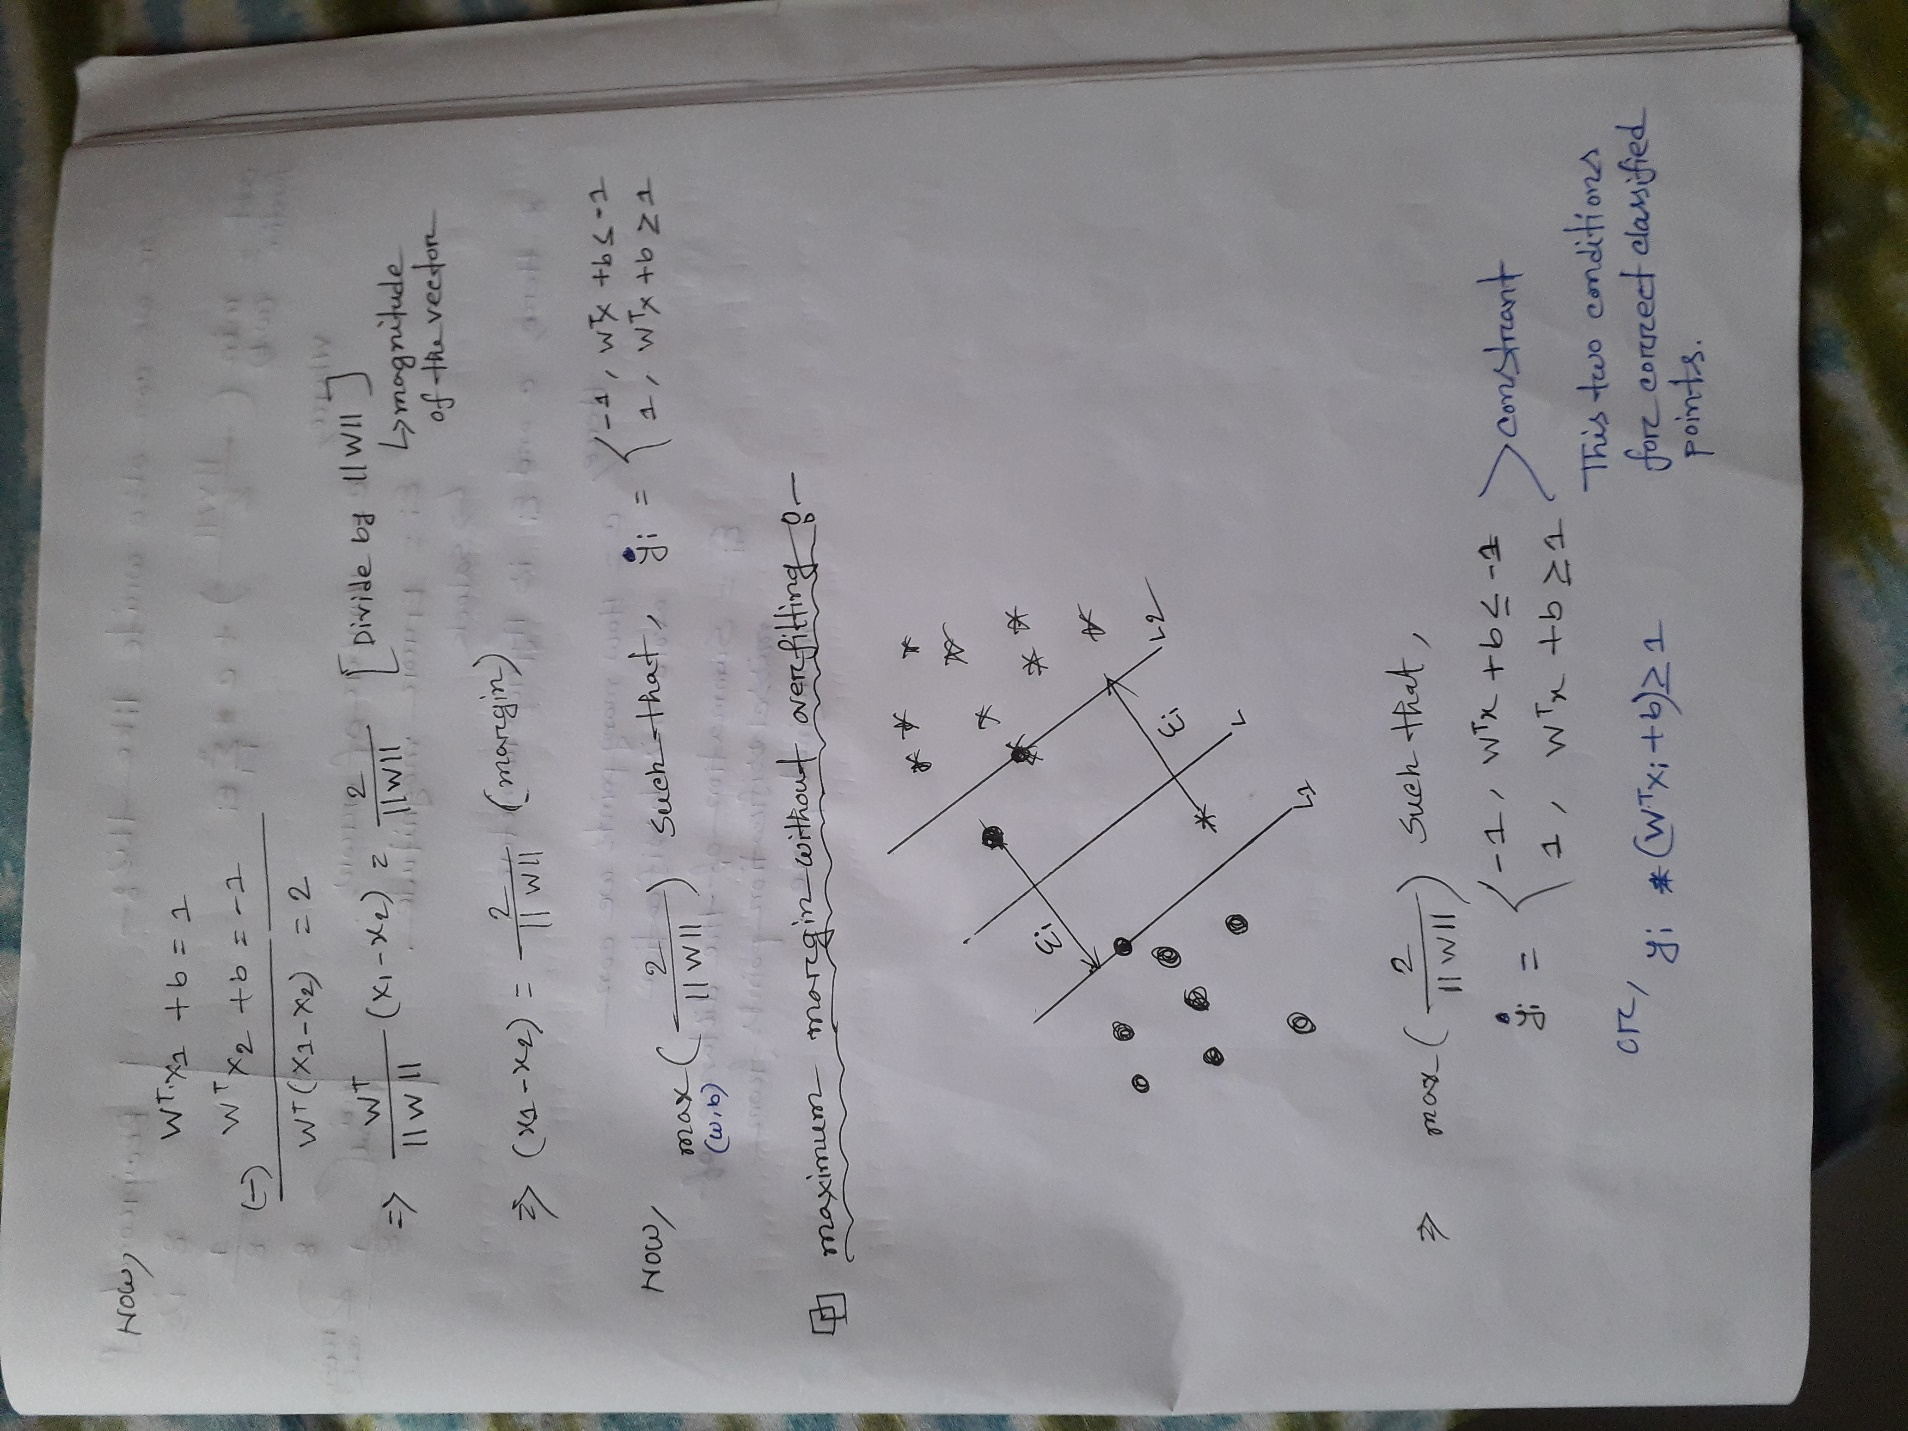 Now,
Wᵀ.x1 + b = 1
Wᵀx2 + b = -1
(-)
Wᵀ(x1-x2) = 2
=> Wᵀ/||W|| (x1-x2) = 2/||W|| [Divide by ||W||]
↳ magnitude
of the vector
=> (x1-x2) = 2/||W|| (margin)
Now, max (2/||W||) such that, yi = { -1, Wᵀx + b ≤ -1
(w,b) 1, Wᵀx + b ≥ 1
maximum margin without overfitting :-
L2
ξi
L
ξi
L1
=> max (2/||W||) such that,
yi = { -1, Wᵀx + b ≤ -1 > constraint
1, Wᵀx + b ≥ 1
or, yi * (Wᵀxi + b) ≥ 1
This two conditions
for correct classified
points.